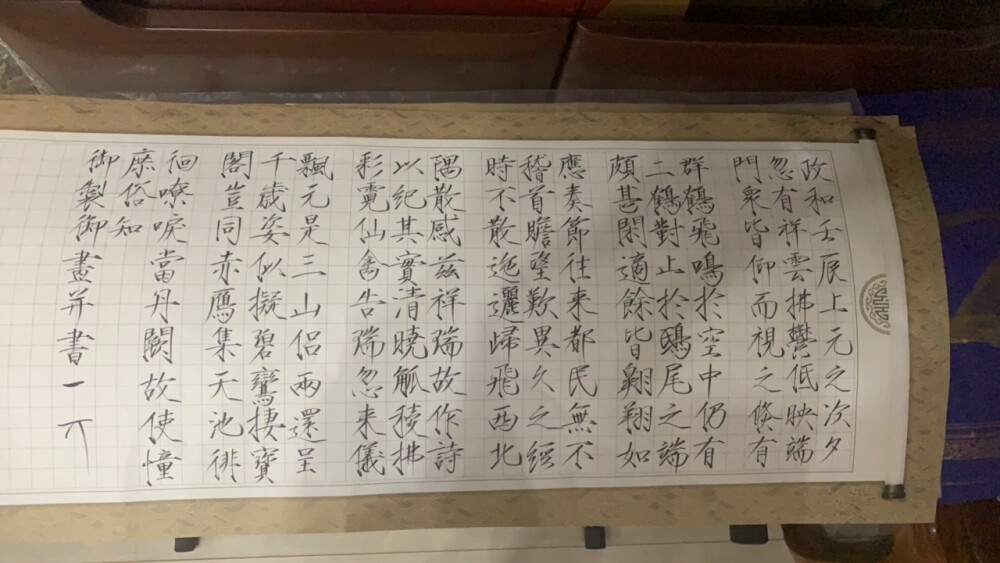 政和壬辰上元之次夕
忽有祥雲拂鬱低映端
門衆皆仰而視之倏有
群鶴飛鳴於空中仍有
二鶴對止於鴟尾之端
頗甚閑適餘皆翱翔如
應奏節往来都民無不
稽首瞻望歎異久之經
時不散迤邐歸飛西北
隅散感兹祥瑞故作詩
以紀其實清曉觚稜拂
彩霓仙禽告瑞忽来儀
飄元是三山侣兩還呈
千歲姿似擬碧鸞棲寶
閣豈同赤鴈集天池徘
徊嘹唳當丹闕故使憧
庶俗知
御製御畫并書一丌